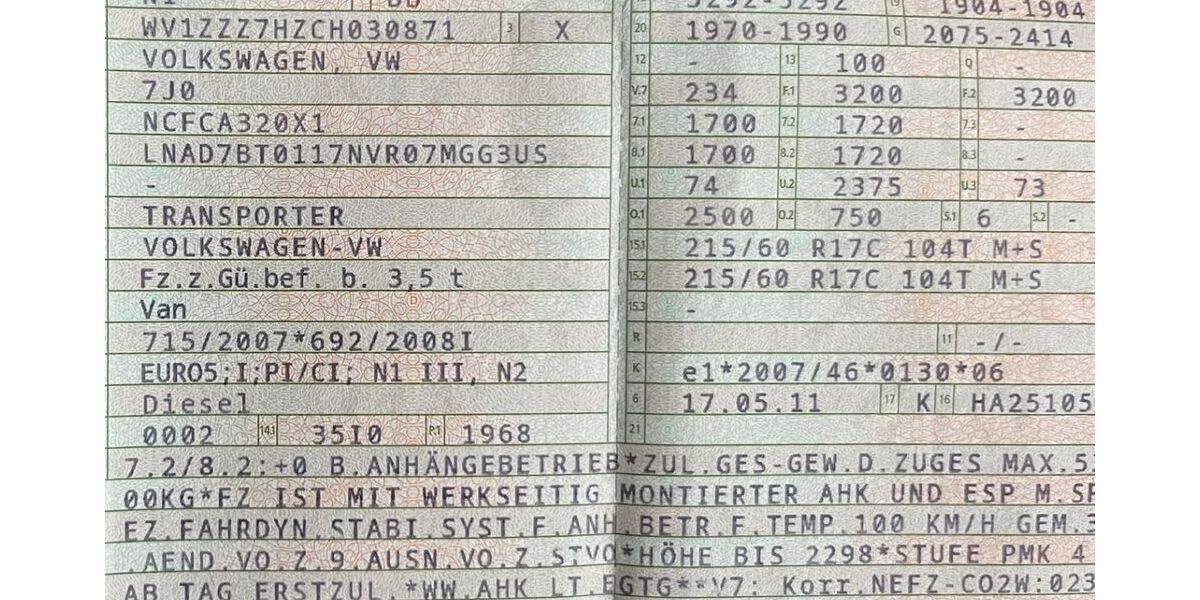 WV1ZZZ7HZCH030871 3 X
VOLKSWAGEN, VW
7J0
NCFCA320X1
LNAD7BT0117NVR07MGG3US
-
TRANSPORTER
VOLKSWAGEN-VW
Fz.z.Gü.bef. b. 3,5 t
Van
715/2007*692/2008I
EURO5;I;PI/CI; N1 III, N2
Diesel
0002 14.1 35I0 P.1 1968
19 1904-1904
20 1970-1990 G 2075-2414
12 - 13 100 Q -
V.7 234 F.1 3200 F.2 3200
7.1 1700 7.2 1720 7.3 -
8.1 1700 8.2 1720 8.3 -
U.1 74 U.2 2375 U.3 73
O.1 2500 O.2 750 S.1 6 S.2 -
15.1 215/60 R17C 104T M+S
15.2 215/60 R17C 104T M+S
15.3 -
R 11 -/-
K e1*2007/46*0130*06
6 17.05.11 17 K 16 HA25105
21
7.2/8.2:+0 B.ANHÄNGEBETRIEB*ZUL.GES-GEW.D.ZUGES MAX.5
00KG*FZ IST MIT WERKSEITIG MONTIERTER AHK UND ESP M.SP
EZ.FAHRDYN.STABI.SYST.F.ANH.BETR.F.TEMP.100 KM/H GEM.3
.AEND.VO.Z.9.AUSN.VO.Z.STVO*HÖHE BIS 2298*STUFE PMK 4
AB TAG ERSTZUL.*WW.AHK LT.EGTG**V7: Korr.NEFZ-CO2W:023